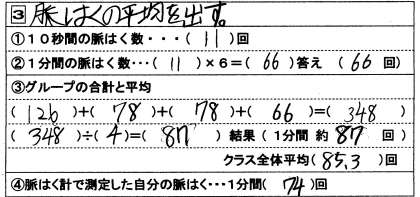 3 脈はくの平均を出す。
①10秒間の脈はく数・・・( 11 )回
②1分間の脈はく数・・・( 11 )×6=( 66 )答え ( 66 回)
③グループの合計と平均
( 126 )+( 78 )+( 78 )+( 66 )=( 348 )
( 348 )÷( 4 )=( 87 ) 結果( 1分間 約 87 回 )
クラス全体平均( 85.3 )回
④脈はく計で測定した自分の脈はく・・・1分間( 74 )回